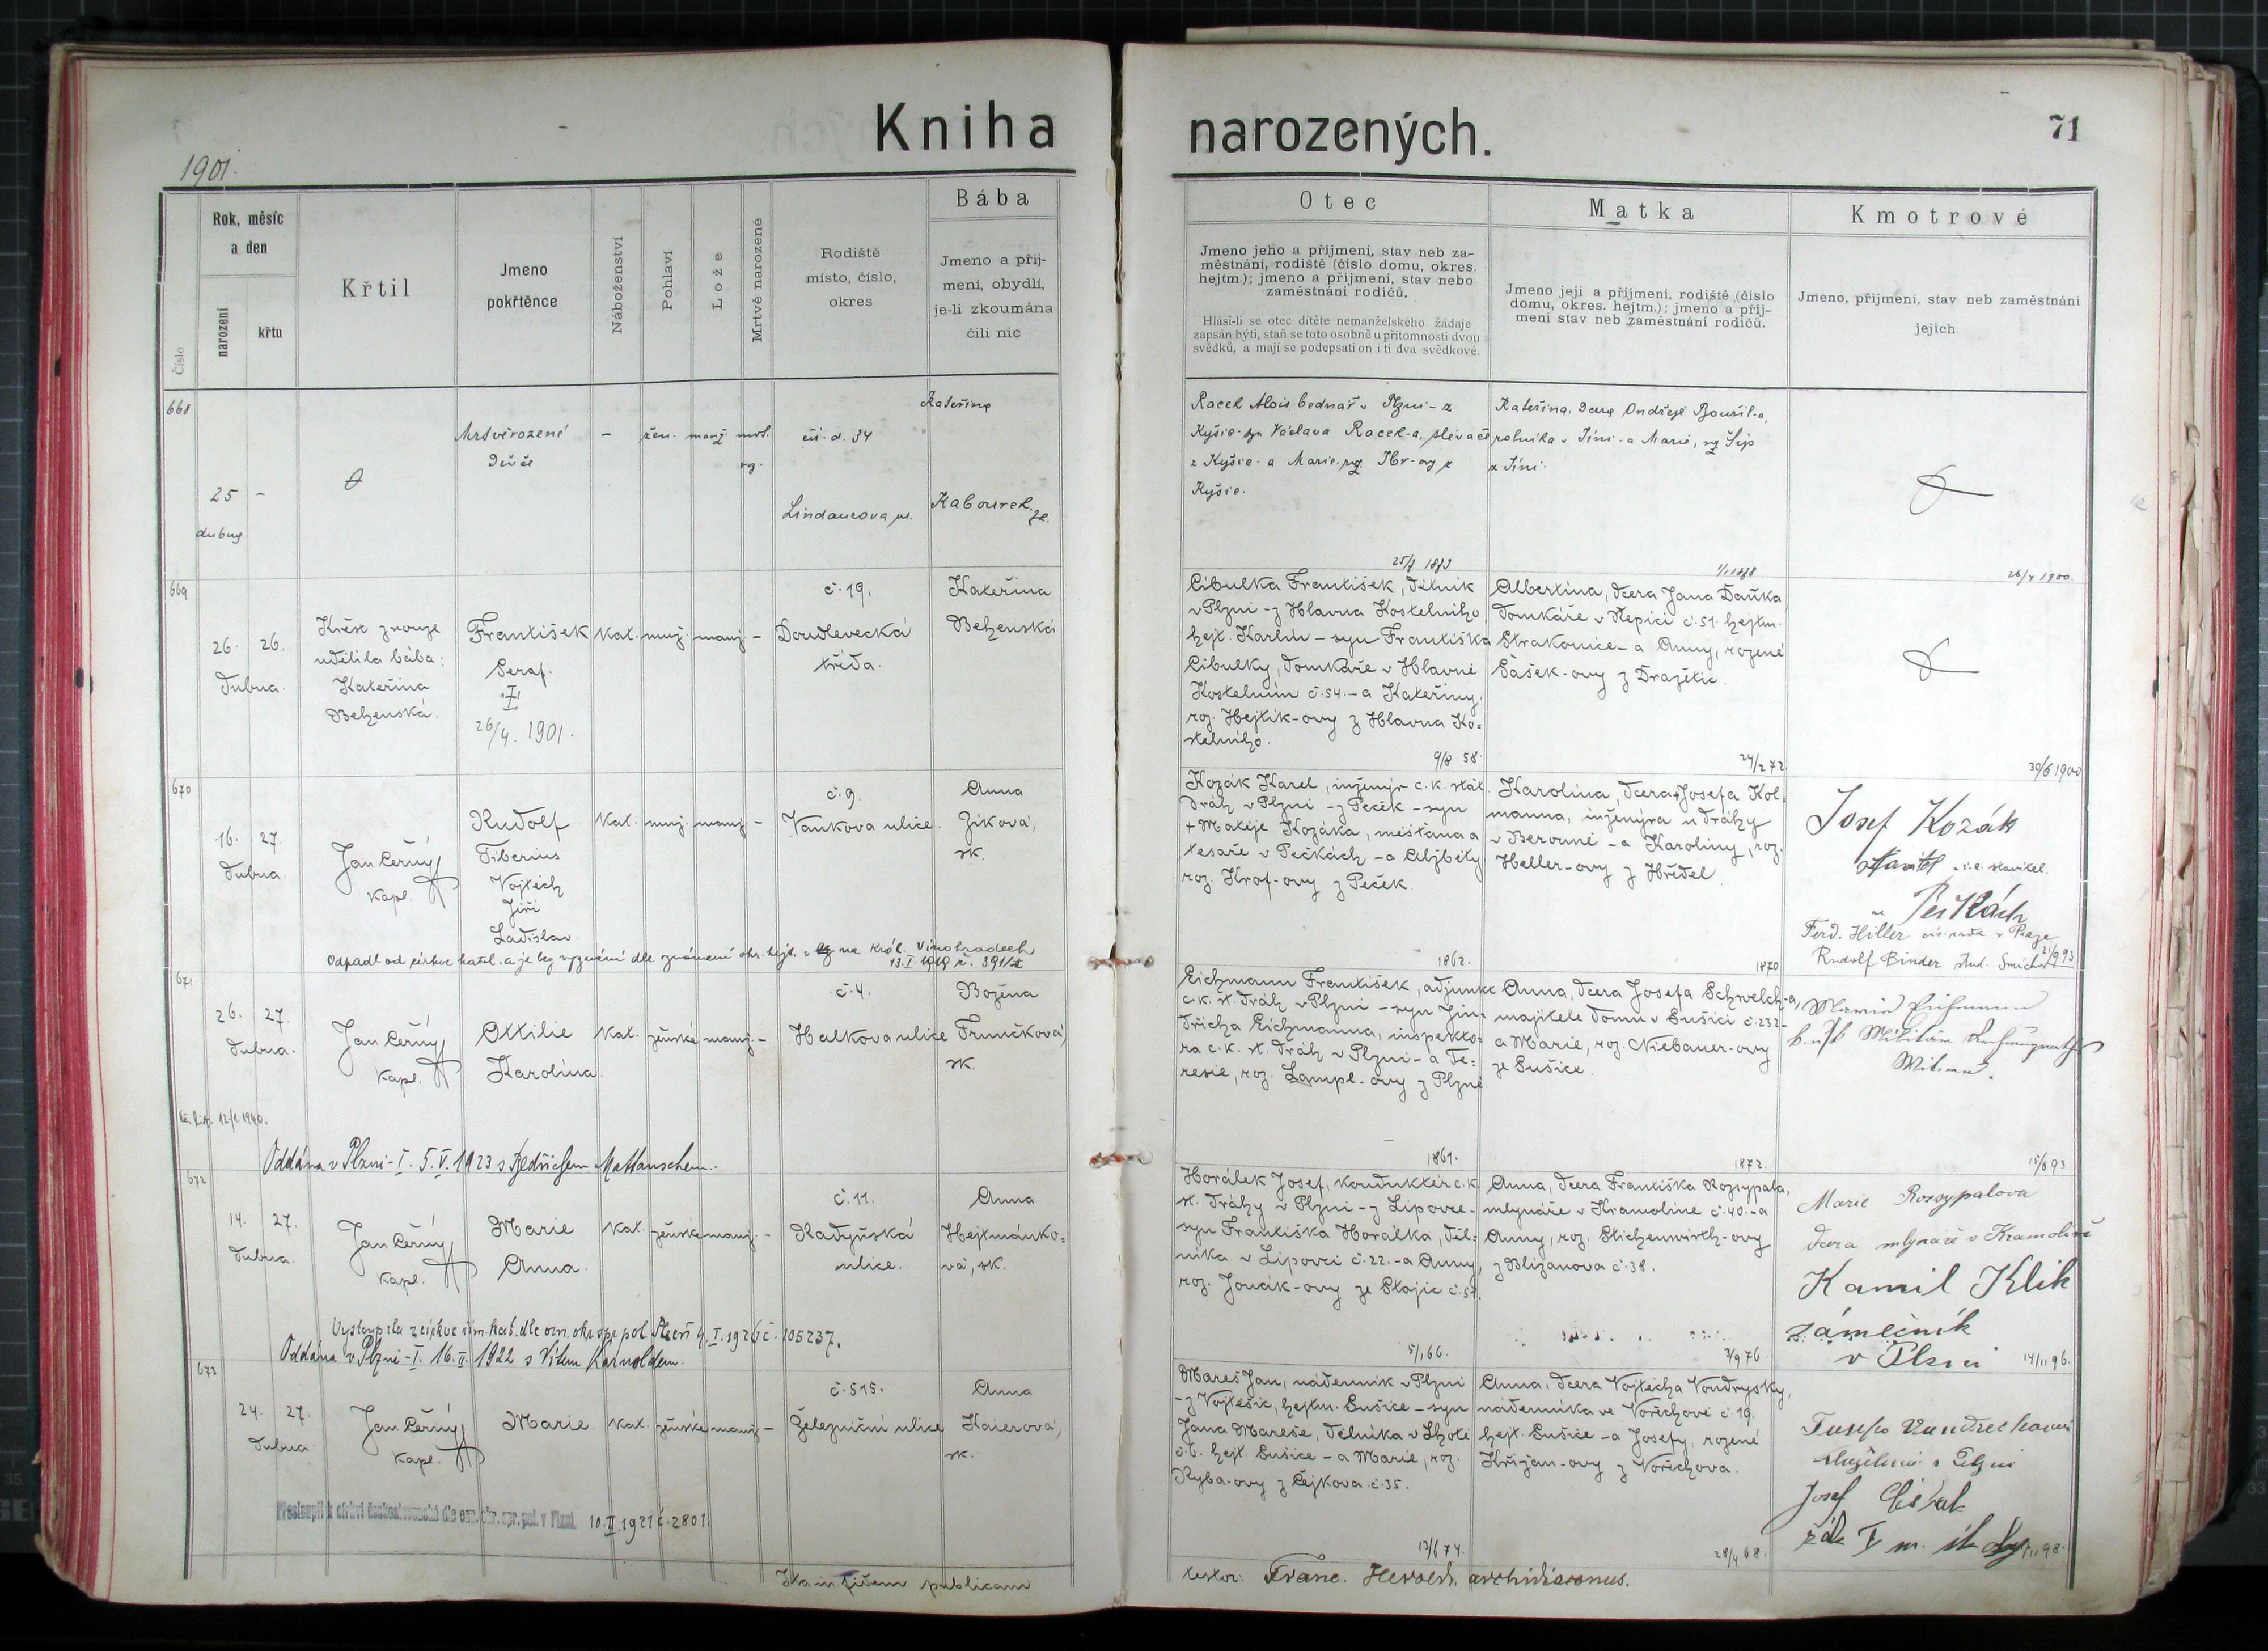 Kniha narozených.
71
1901.
Číslo
Rok, měsíc
a den
narození
křtu
Křtil
Jmeno
pokřtěnce
Náboženství
Pohlaví
Lože
Mrtvě narozené
Rodiště
místo, číslo,
okres
Bába
Jmeno a příj-
mení, obydlí,
je-li zkoumána
čili nic
Otec
Jmeno jeho a příjmení, stav neb za-
městnání, rodiště (číslo domu, okres.
hejtm.); jmeno a příjmení, stav nebo
zaměstnání rodičů.
Hlásí-li se otec dítěte nemanželského žádaje
zapsán býti, staň se toto osobně u přítomnosti dvou
svědků, a mají se podepsati on i ti dva svědkové.
Matka
Jmeno její a příjmení, rodiště (číslo
domu, okres. hejtm.); jmeno a příj-
mení stav neb zaměstnání rodičů.
Kmotrové
Jmeno, příjmení, stav neb zaměstnání
jejich
668
25 -
dubna
Mrtvěrozené
Děvče
-
žen.
manž
mrt.
rz.
čís. d. 34
Lindaurova ul.
Kateřina
Kabourek.
Racek Alois, bednář v Plzni - z
Kyšic - syn Václava Racek-a, slévače
z Kyšic - a Marie, roz.
Kyšic.
Kateřina, dcera Ondřeje Bouřil-a,
rolníka v Jíni - a Marie,
z Jíni.
669
26. 26.
dubna.
Křest z nouze
udělila bába:
Kateřina
Behenská.
František
Seraf.
26/4. 1901.
kat.
muž.
manž.
-
č. 19.
Doudlevecká
třída.
Kateřina
Behenská
Cibulka František, dělník
v Plzni - z Hlavna Kostelního,
hejt. Karlín - syn Františka
Cibulky, domkáře v Hlavně
Kostelním č. 54. - a Kateřiny,
roz. Hejtík-ovy z Hlavna Ko-
stelního.
Albertina, dcera Jana Daňka,
domkáře v Řepici č. 51. hejtm.
Strakonice - a Anny, rozené
Šašek-ovy z Dražetic.
26/4 1900.
670
16. 27.
dubna.
Jan Černý
kapl.
Rudolf
Tiberius
Vojtěch
Jiří
Ladislav
kat.
muž.
manž.
-
č. 9.
Vaňkova ulice.
Anna
Ziková,
zk.
9/8 58
Kozák Karel, inženýr c. k. stát.
dráh v Plzni - z Peček - syn
+ Matěje Kozáka, měšťana a
tesaře v Pečkách - a Alžběty
roz. Krof-ovy z Peček.
24/2 72
Karolina, dcera + Josefa Kol-
manna, inženýra u dráhy
v Berouně - a Karoliny, roz.
Heller-ovy z Hředel.
30/6 1900
Josef Kozák
stavitel i. e. stavitel.
Pečkách
Ferd. Hiller cís. rada v Praze
Rudolf Binder stud. Smíchov
Odpadl od církve katol. a je bez vyznání dle oznámení okr. hejt. na Král. Vinohradech
13. I. 1919 č. 391
671
26. 27.
dubna.
Jan Černý
kapl.
Ottilie
Karolina
kat.
ženské
manž.
-
č. 4.
Halkova ulice
Božena
Trunčková,
zk.
1862.
Eichmann František, adjunkt
c. k. st. dráh v Plzni - syn Jin-
dřicha Eichmanna, inspekto-
ra c. k. st. dráh v Plzni - a Te-
resie, roz. Lampl-ovy z Plzně
1870
Anna, dcera Josefa Schwelch-a,
majitele domu v Sušici č. 232 -
a Marie, roz. Niebauer-ovy
ze Sušice.
21/9 93
12/1. 1940.
Oddána v Plzni - I. 5. V. 1923 s Bedřichem Mattauschem.
672
14. 27.
dubna.
Jan Černý
kapl.
Marie
Anna.
kat.
ženské
manž.
-
č. 11.
Radyňská
ulice.
Anna
Hejtmánko-
vá, zk.
1861.
Horálek Josef, konduktér c. k.
st. dráhy v Plzni - z Lipovce -
syn Františka Horálka, děl-
níka v Lipovci č. 22. - a Anny,
roz. Jonák-ovy ze Stojic č. 51.
1872.
Anna, dcera Františka Rozsypala,
mlynáře v Kramolíně č. 40. - a
Anny, roz. Stichenwirth-ovy
z Bližanova č. 38.
15/6 93
Marie Rozsypalova
dcera mlynáře v Kramolíně
Kamil Klik
zámečník
v Plzni
Vystoupila z církve řím. kat. dle ozn. okr. spr. pol. Plzeň 4. I. 1926 č. 105237.
Oddána v Plzni - I. 16. II. 1922 s Vítem Karnoldem.
673
24. 27.
dubna
Jan Černý
kapl.
Marie
kat.
ženské
manž.
-
č. 515.
Železniční ulice
Anna
Kaierová,
zk.
5/1 66.
Mareš Jan, nádenník v Plzni
- z Vojtěšic, hejtm. Sušice - syn
Jana Mareše, dělníka v Lhotě
č. 6. hejt. Sušice - a Marie, roz.
Ryba-ovy z Čejkova č. 35.
3/9 76
Anna, dcera Vojtěcha Voudrysky,
nádenníka ve Vořechově č. 19.
hejt. Sušice - a Josefy, rozené
Křižan-ovy z Vořechova.
14/11 96.
služebná v Plzni
Josef
Přestoupil k církvi československé dle ozn. okr. spr. pol. v Plzni. 10. II. 1921 č. 2801.
13/6 74.
28/4 68.
Ita in fidem publicam
testor: Franc. Herold, archidiaconus.